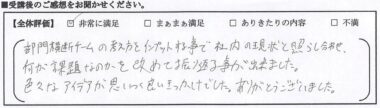 ■受講後のご感想をお聞かせください。
【全体評価】 ☑ 非常に満足 □ まぁまぁ満足 □ ありきたりの内容 □ 不満
部門横断チームの考え方をインプット出来る事で社内の現状と照らし合わせ、
何が課題なのかを改めて振り返る事が出来ました。
色々なアイデアが思いつく良いきっかけでした。ありがとうございました。